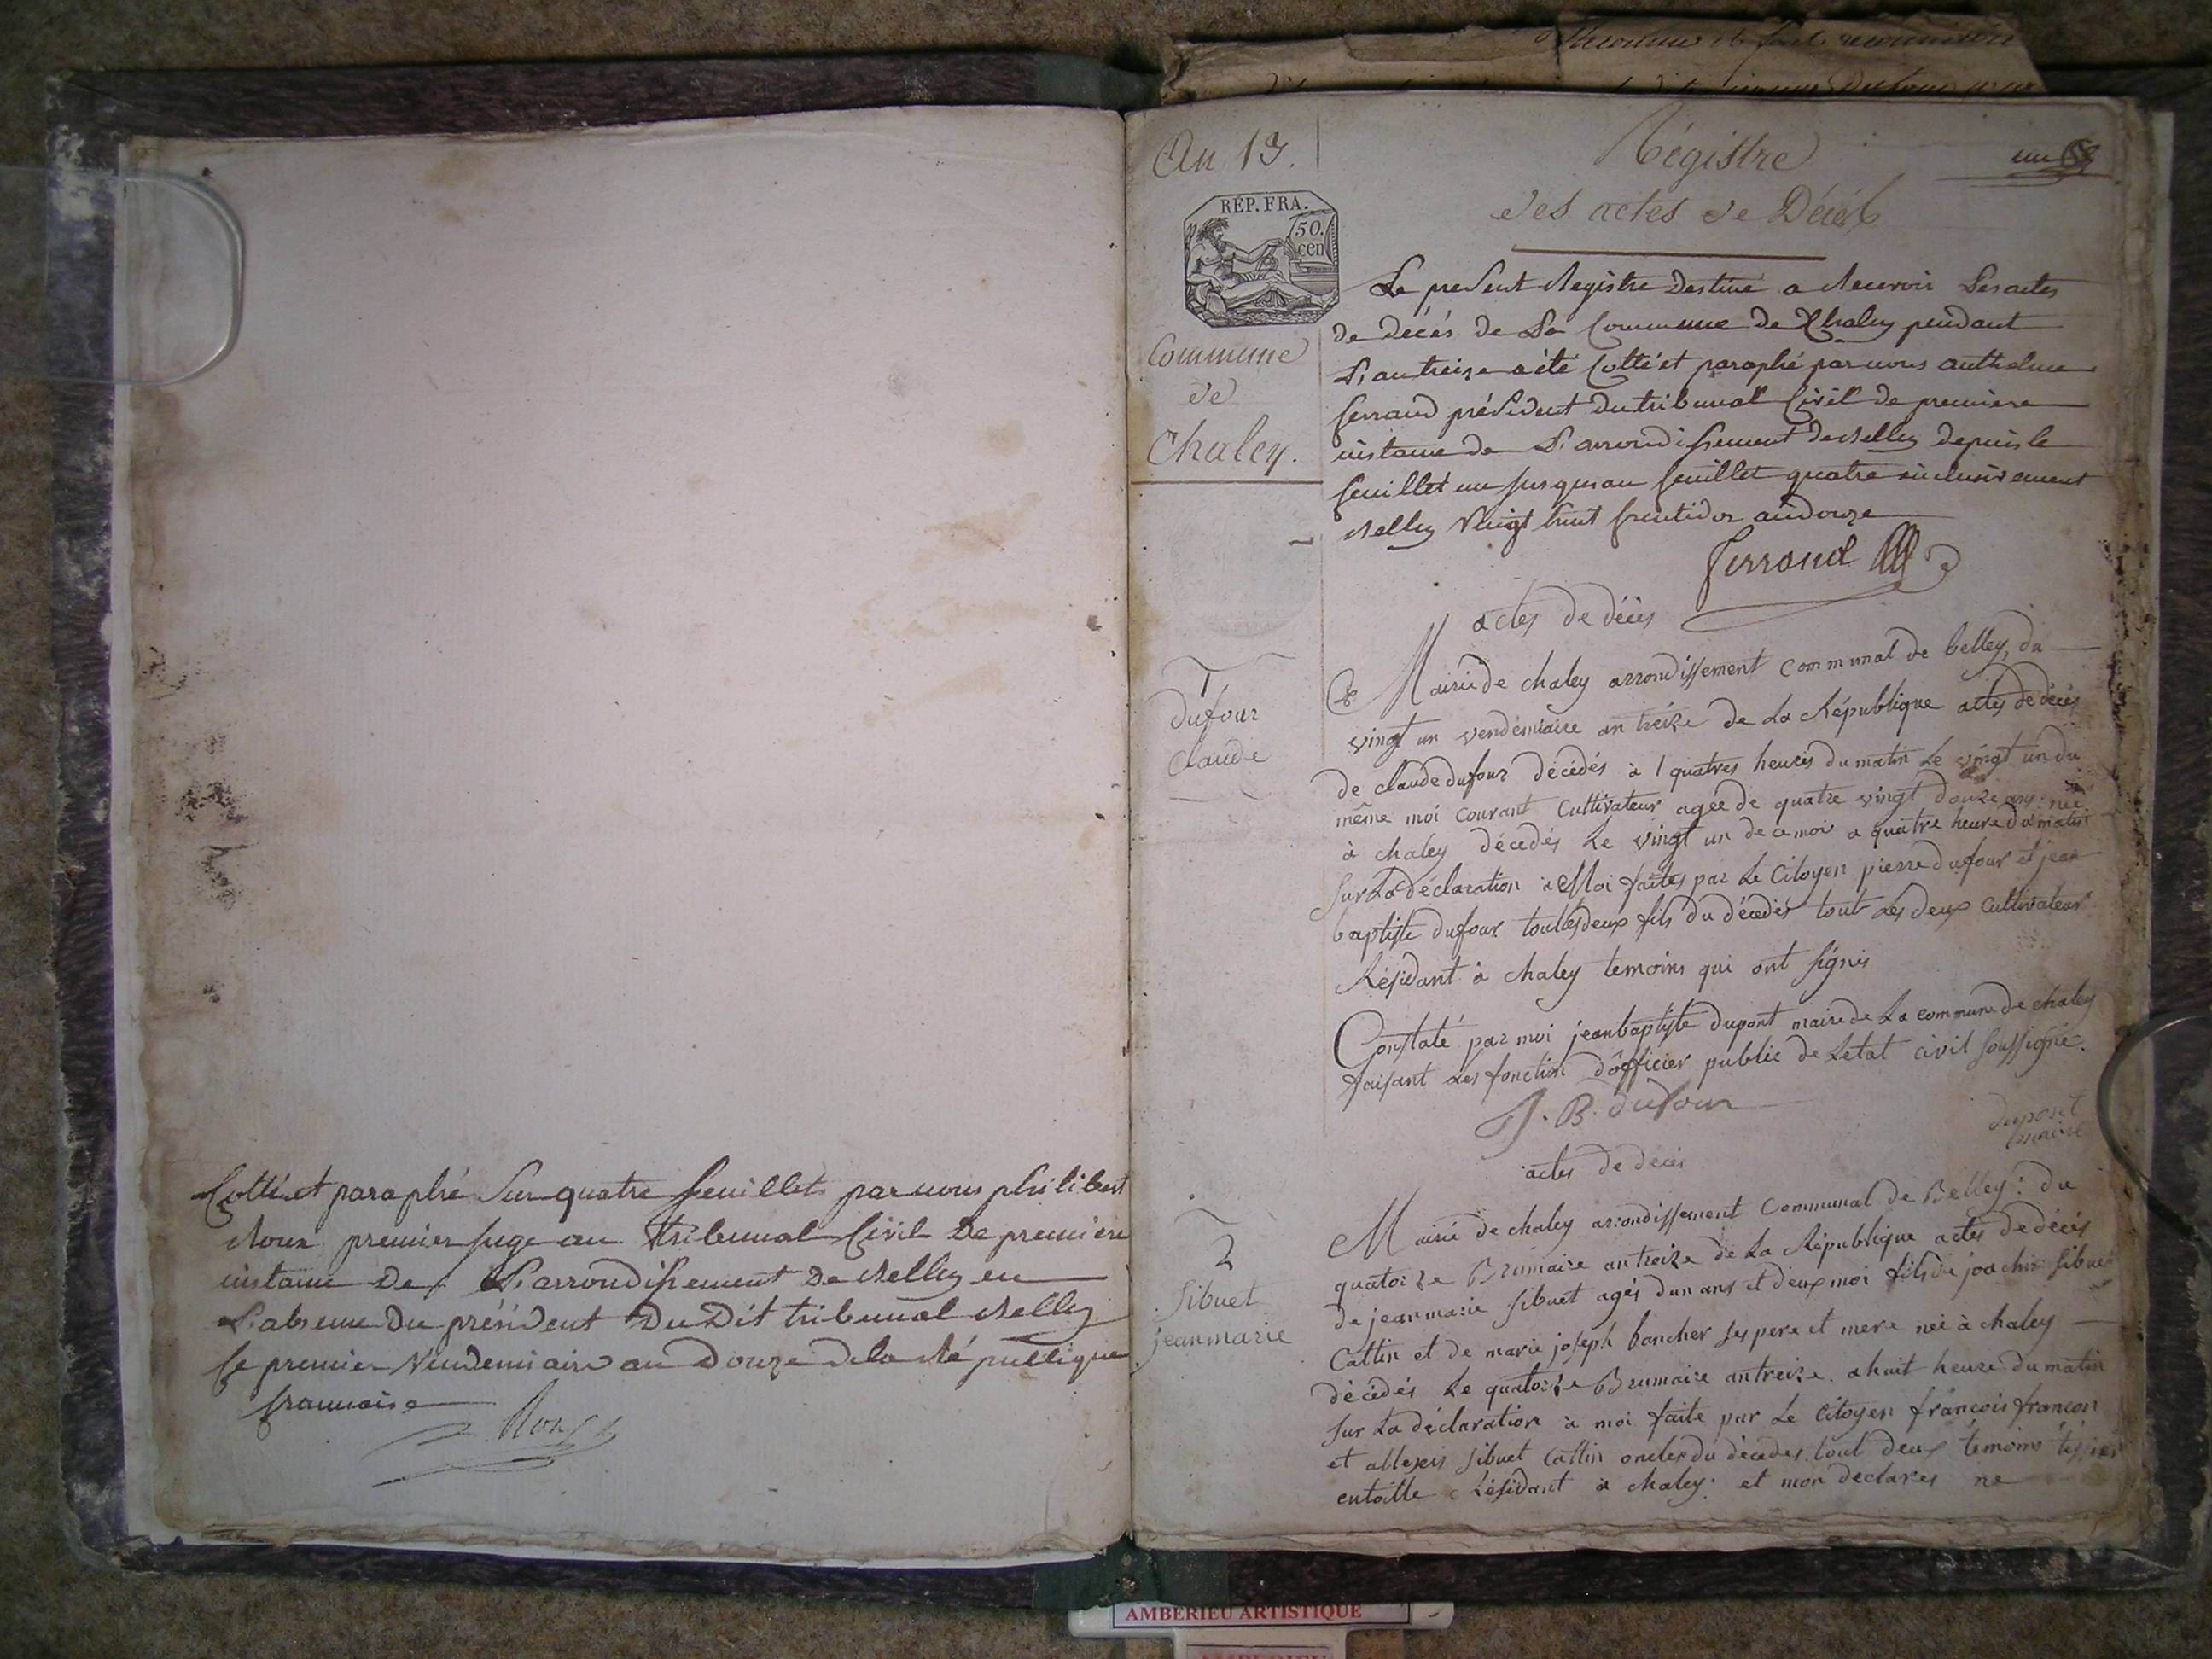 Cotté et paraphé Sur quatre feuillets par nous philibert
Roux premier juge au tribunal Civil De premiere
instance De L'arrondissement De Belley en
L'absence Du président Du Dit tribunal Belley
le premier Vendemiaire an Douze de la République
francaise
Roux
An 13.
RÉP. FRA.
50.
cen
Commune
de
Chaley.
Régistre
un
des actes de Décés
Le present Registre Destiné a Recevoir Les actes
de décés de La Commune de Chaley pendant
L'an treize a été Cotté et paraphé par nous anthelme
ferrand président du tribunal Civil de premiere
instance de L'arrondissement de Belley depuis le
feuillet un jusques au feuillet quatre inclusivement
Belley Vingt huit fructidor an douze
ferrand
actes de décès
1
dufour
claude
Mairie de chaley arrondissement communal de belley, du
vingt un vendémiaire an treize de La République actes de décès
de claude dufour décédés à quatres heures du matin Le vingt un du
même moi courant Cultivateur agée de quatre vingt douze ans née
à chaley décédés Le vingt un de ce moi a quatre heure du matin
Sur La déclaration à Moi faites par Le Citoyen pierre dufour et jean
baptiste dufour tout Les deux fils du décédés tout Les deux Cultivateur
Résidant à chaley temoins qui ont signés
Constaté par moi jean baptiste dupont maire de La commune de chaley
faisant Les fonction d'officier public de Letat civil soussigné.
J. B. dufour
dupont
maire
actes de décès
2
Sibuet
jeanmarie
Mairie de chaley arrondissement Communal de Belley: du
quatorze Brumaire an treize de La République actes de décès
de jeanmarie sibuet agés dun ans et deux moi fils de joachin sibuet
Cattin et de marie joseph bancher ses pere et mere neé à chaley
décédés Le quatorze Brumaire an treize. a huit heure du matin
Sur La déclaration à moi faite par Le Citoyen françois françon
et allexis sibuet Cattin oncles du décedes. tout deux témoins
entoille Résidant à chaley: et mon declares ne
AMBERIEU ARTISTIQUE
AMBERIEU